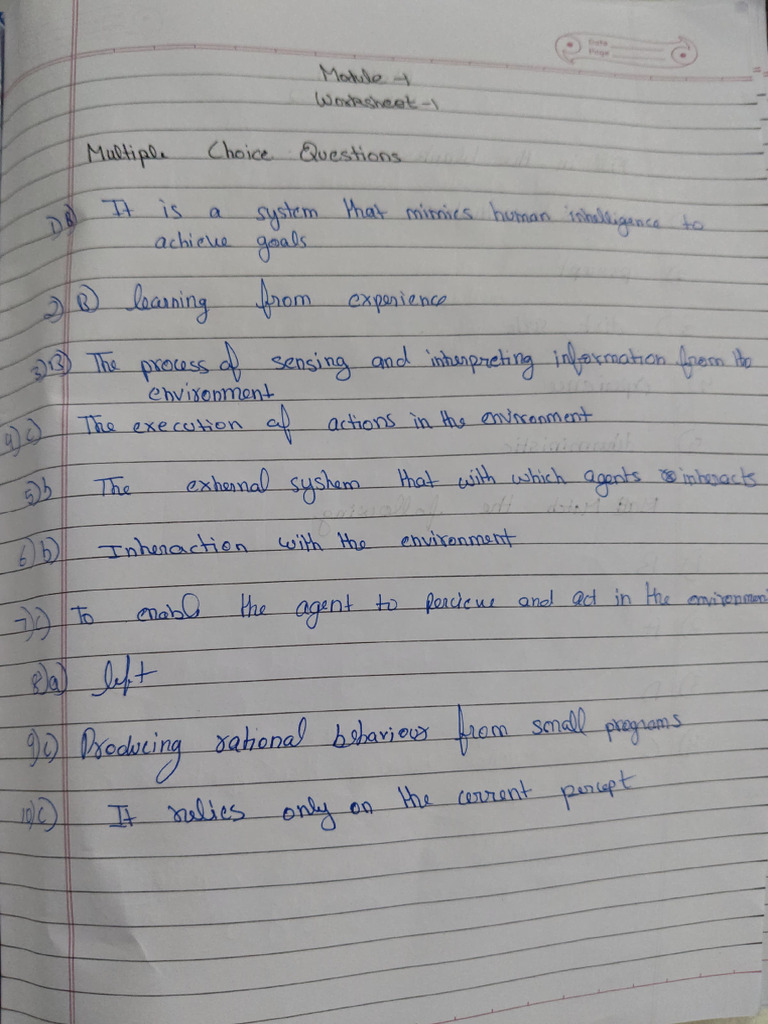 Date
Page
Module -1
Worksheet -1
Multiple Choice Questions
1) B) It is a system that mimics human intelligence to
achieve goals
2) B) learning from experience
3) B) The process of sensing and interpreting information from its
environment
4) c) The execution of actions in the environment
5) b The external system that with which agents interacts
6) b) Interaction with the environment
7) c) To enable the agent to percieve and act in the environment
8) a) left
9) c) Producing rational behaviour from small programs
10) c) It relies only on the current percept